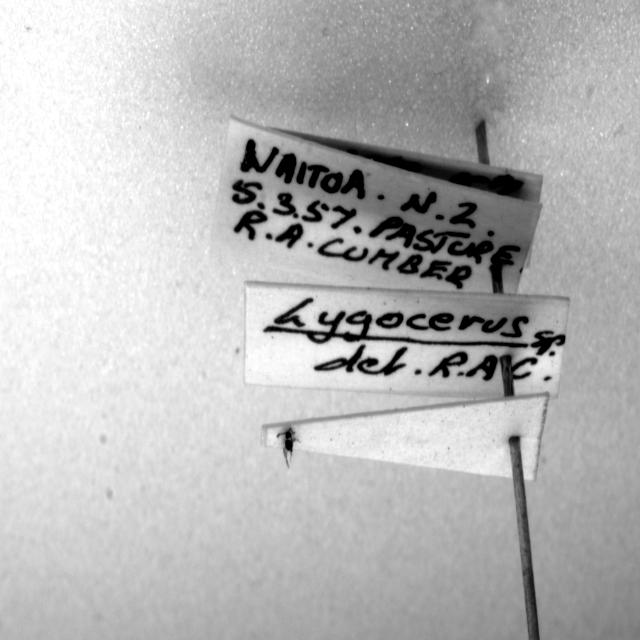 NAITOA. N.Z.
5.3.57. PASTURE
R.A. CUMBER
Lygocerus sp.
det. R.A.C.